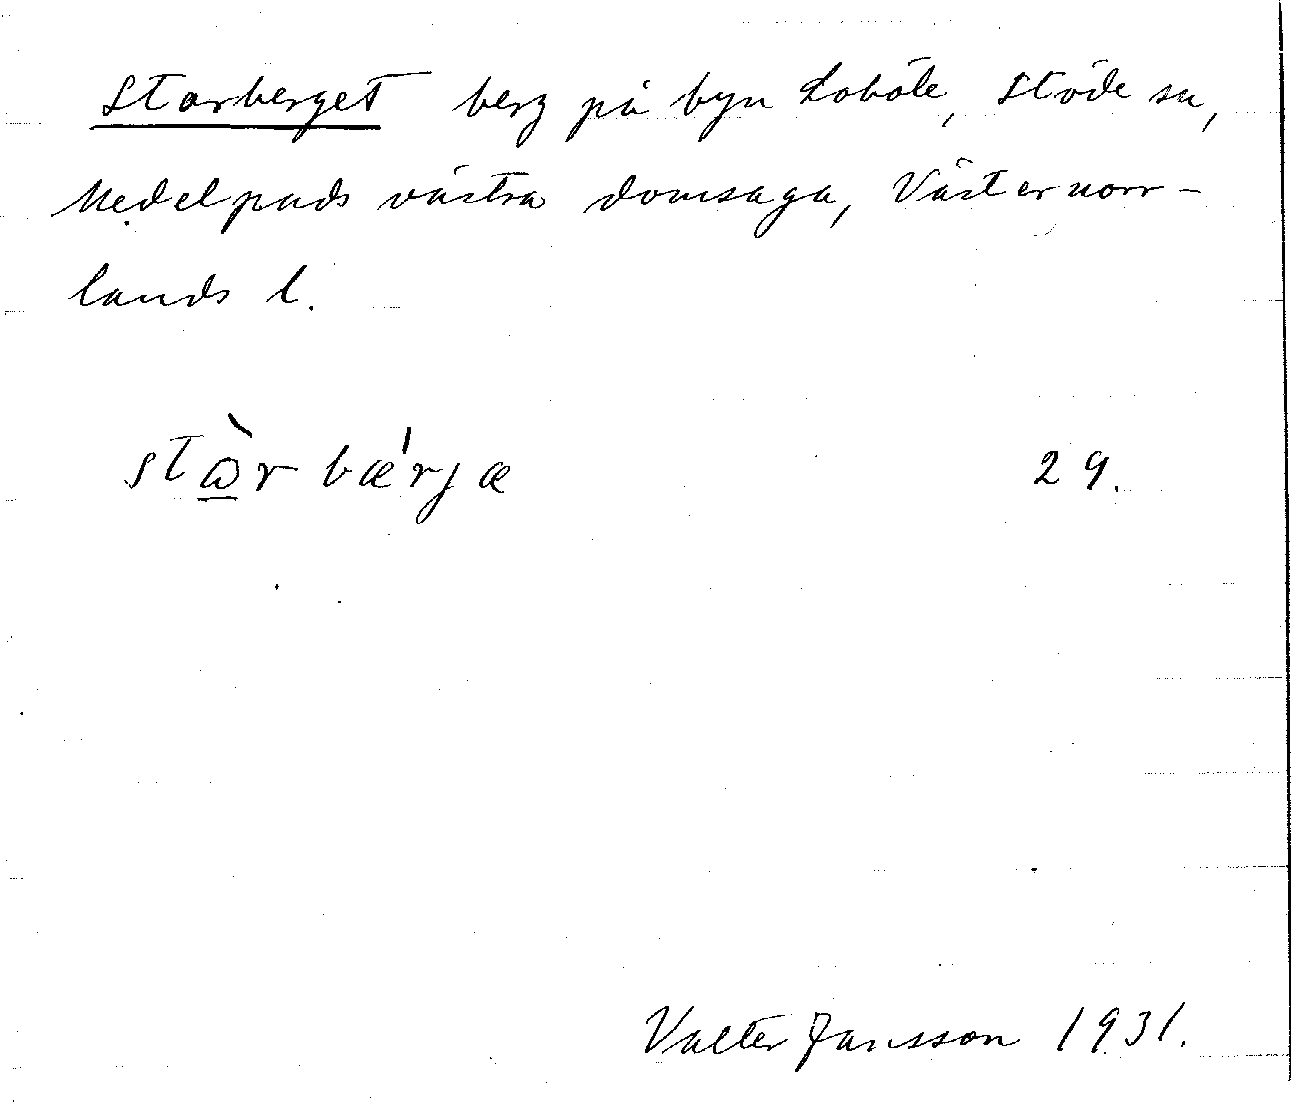 Storberget berg på byn Loböle, Stöde sn,
Medelpads västra domsaga, Västernorr-
lands l.
stὼ̲r bæ'rjæ 29.
Valter Jansson 1931.